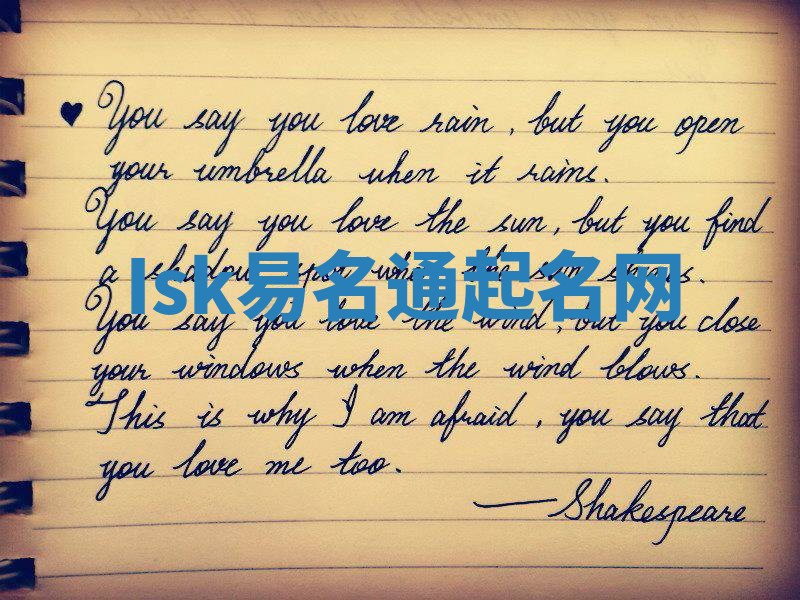 You say you love rain, but you open
your umbrella when it rains.
You say you love the sun, but you find
a shadow spot when the sun shines.
lsk易名通起名网
You say you love the wind, but you close
your windows when the wind blows.
This is why I am afraid, you say that
you love me too.
—Shakespeare